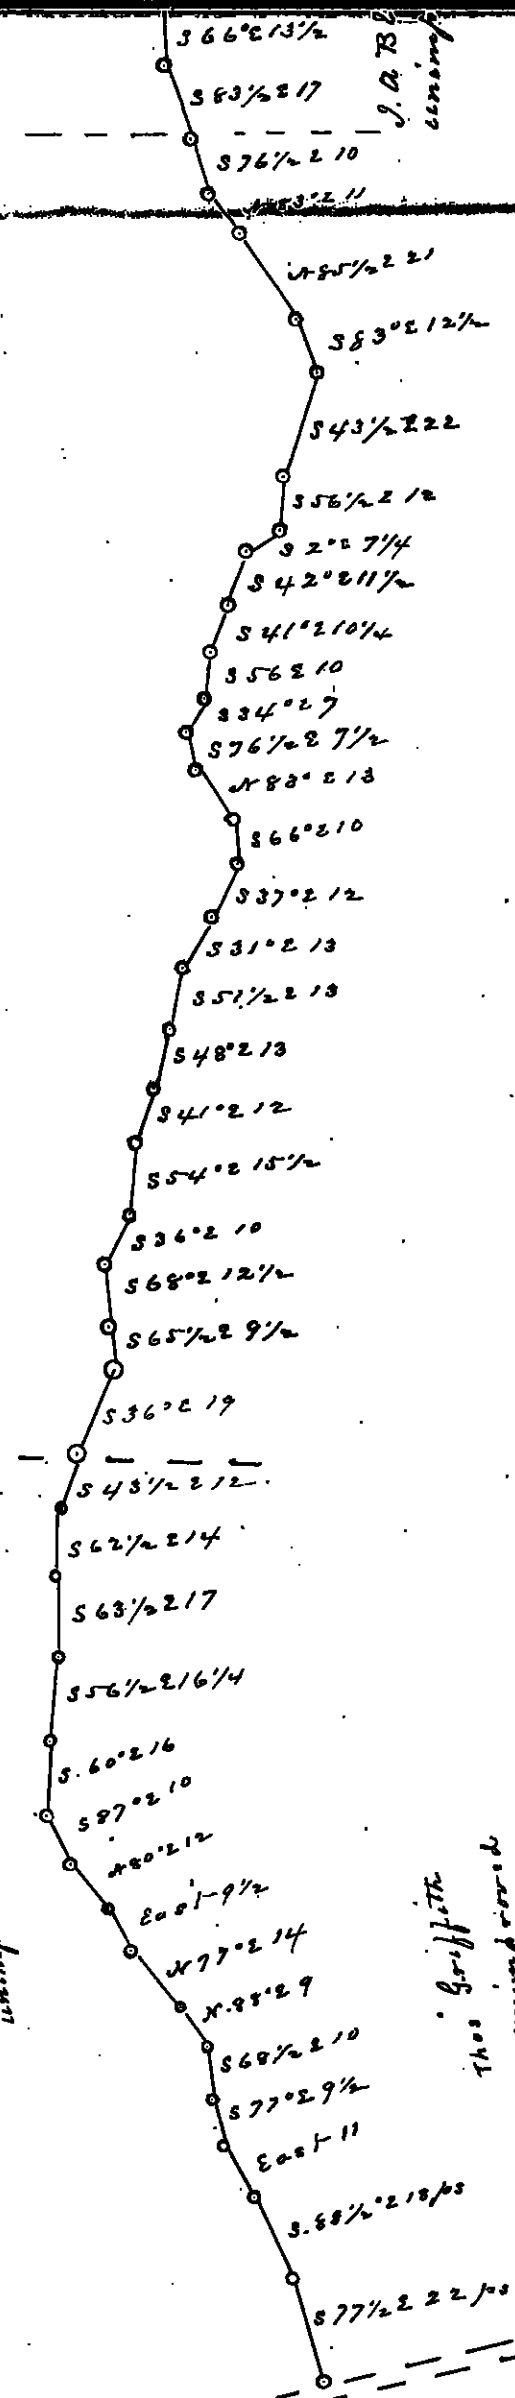 S 66° E 13 1/2
S 83 1/2 E 17
J. A. B
S 76 1/2 E 10
N 83° E 11
N 85 1/2 E 21
S 83° E 12 1/2
S 43 1/2 E 22
S 56 1/2 E 12
S 2° E 7 1/4
S 42° E 11 1/2
S 41° E 10 1/4
S 56 E 10
S 34° E 7
S 76 1/2 E 7 1/2
N 83° E 13
S 66° E 10
S 37° E 12
S 31° E 13
S 51 1/2 E 13
S 48° E 13
S 41° E 12
S 54° E 15 1/2
S 36° E 10
S 68° E 12 1/2
S 65 1/2 E 9 1/2
S 36° E 19
S 43 1/2 E 12
S 62 1/2 E 14
S 63 1/2 E 17
S 56 1/2 E 16 1/4
S. 60° E 16
S 87° E 10
N 80° E 12
East 9 1/2
N 77° E 14
N. 88° E 9
Thos Griffith
S 68 1/2 E 10
S 77° E 9 1/2
East 11
S. 68 1/2° E 18 ps
S 77 1/2 E 22 ps